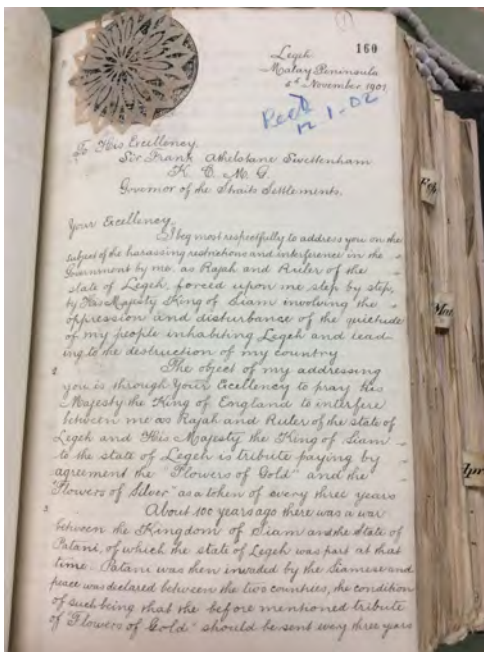 (1)
160
Legeh
Malay Peninsula
November 1901
Recd
12.1.02
To His Excellency
Sir Frank Athelstane Swettenham
K. C. M. G.
Governor of the Straits Settlements.
Your Excellency
I beg most respectfully to address you on the
subject of the harassing restrictions and interference in the
Government by me, as Rajah and Ruler of the
state of Legeh, forced upon me step by step,
by His Majesty King of Siam involving the
oppression and disturbance of the quietude
of my people inhabiting Legeh and lead-
ing to the destruction of my country
2 The object of my addressing
you is through Your Excellency to pray His
Majesty the King of England to interfere
between me as Rajah and Ruler of the state of
Legeh and His Majesty the King of Siam
to the state of Legeh is tribute paying by
agreement the "Flowers of Gold" and the
"Flowers of Silver" as a token of every three years
3 About 100 years ago there was a war
between the Kingdom of Siam and the State of
Patani, of which the state of Legeh was part at that
time. Patani was then invaded by the Siamese and
peace was declared between the two countries, the condition
of such being that the before mentioned tribute
of "Flowers of Gold" should be sent every three years